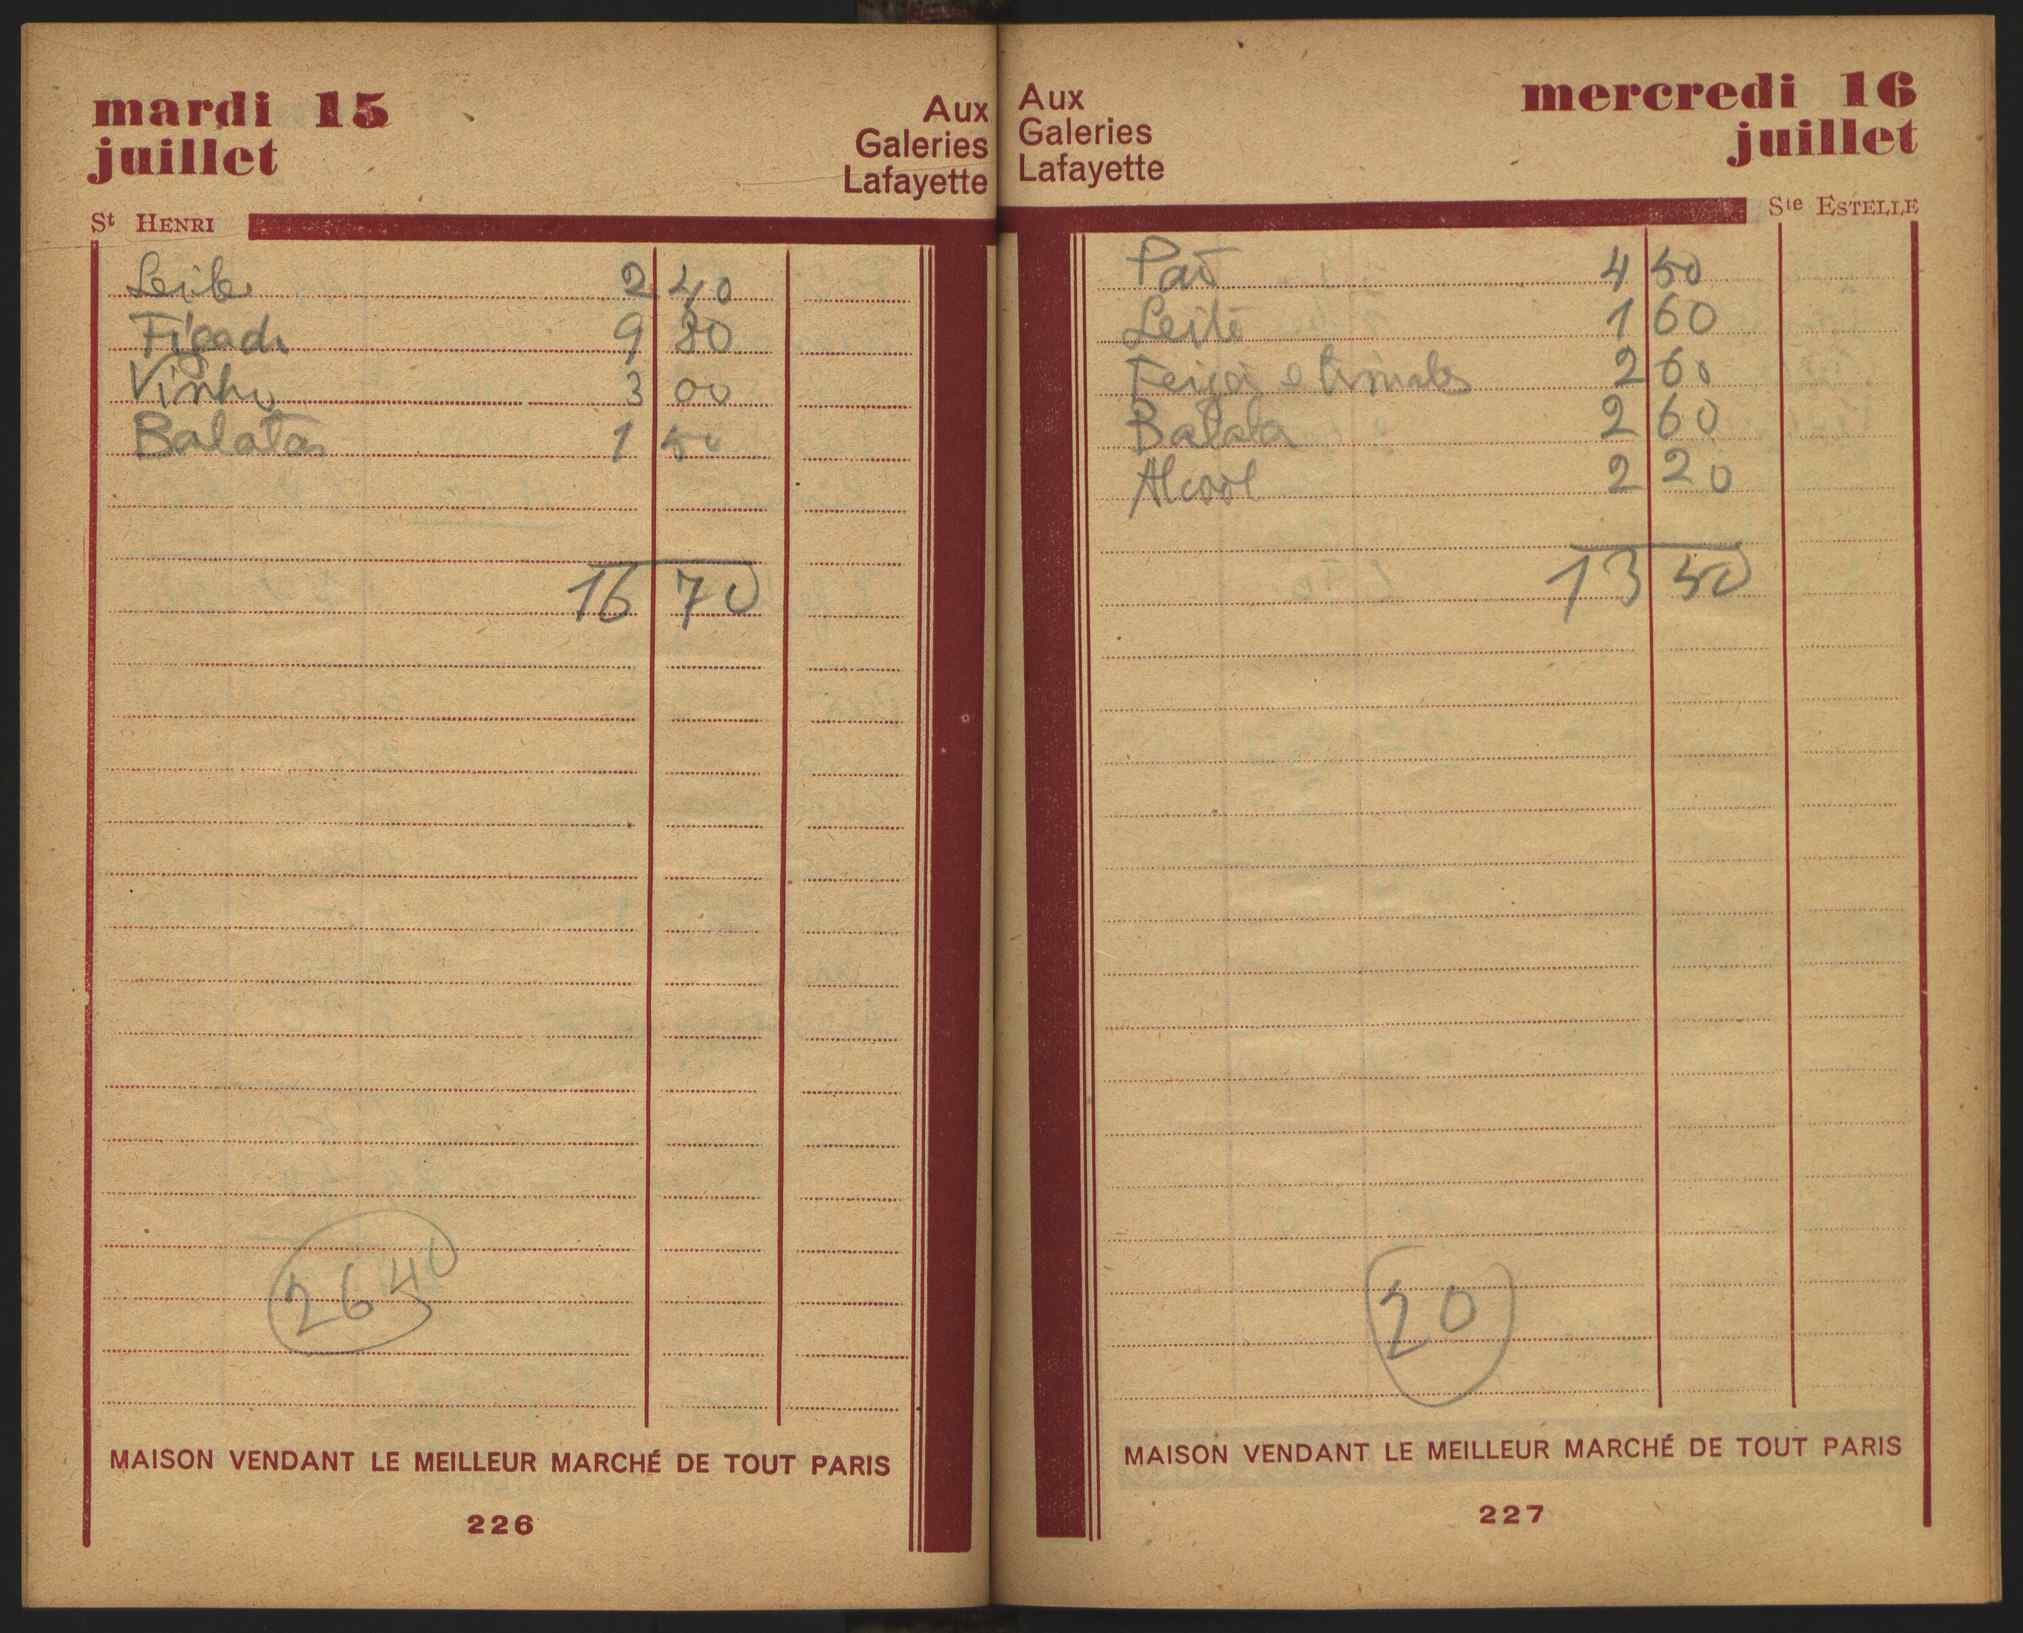 mardi 15
juillet
Aux
Galeries
Lafayette
St HENRI
Leite 2 40
Figado 9 80
Vinho 3 00
Batatas 1 50
16 70
26 40
MAISON VENDANT LE MEILLEUR MARCHÉ DE TOUT PARIS
226
Aux
Galeries
Lafayette
mercredi 16
juillet
Ste ESTELLE
Pão 4 50
Leite 1 60
Feijão e 2 60
Batata 2 60
Alcool 2 20
13 50
20
MAISON VENDANT LE MEILLEUR MARCHÉ DE TOUT PARIS
227